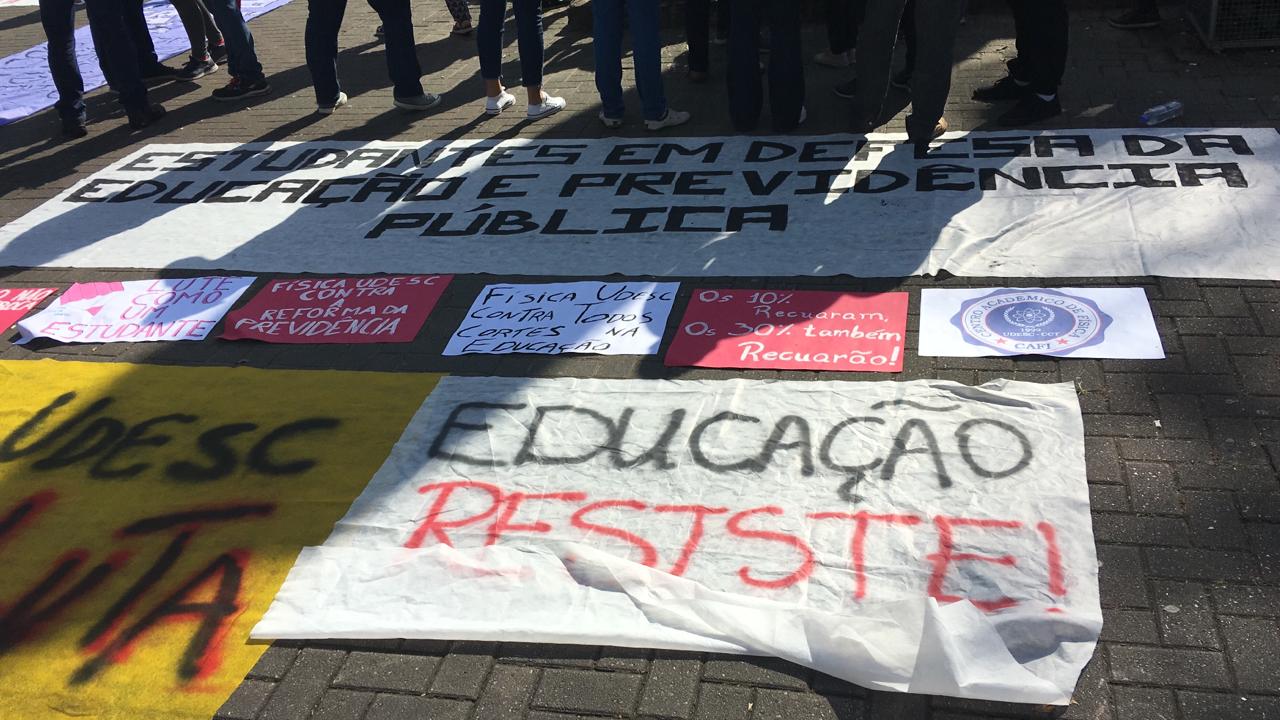 ESTUDANTES EM DEFESA DA
EDUCAÇÃO E PREVIDÊNCIA
PÚBLICA
LUTE
COMO
UM
ESTUDANTE
FÍSICA UDESC
CONTRA
A
REFORMA DA
PREVIDÊNCIA
FÍSICA UDESC
CONTRA TODOS
CORTES NA
EDUCAÇÃO
Os 10%
Recuaram,
Os 30% também
Recuarão!
CENTRO ACADÊMICO DE FÍSICA
1992
UDESC-CCT
CAFI
UDESC
LUTA
EDUCAÇÃO
RESISTE!